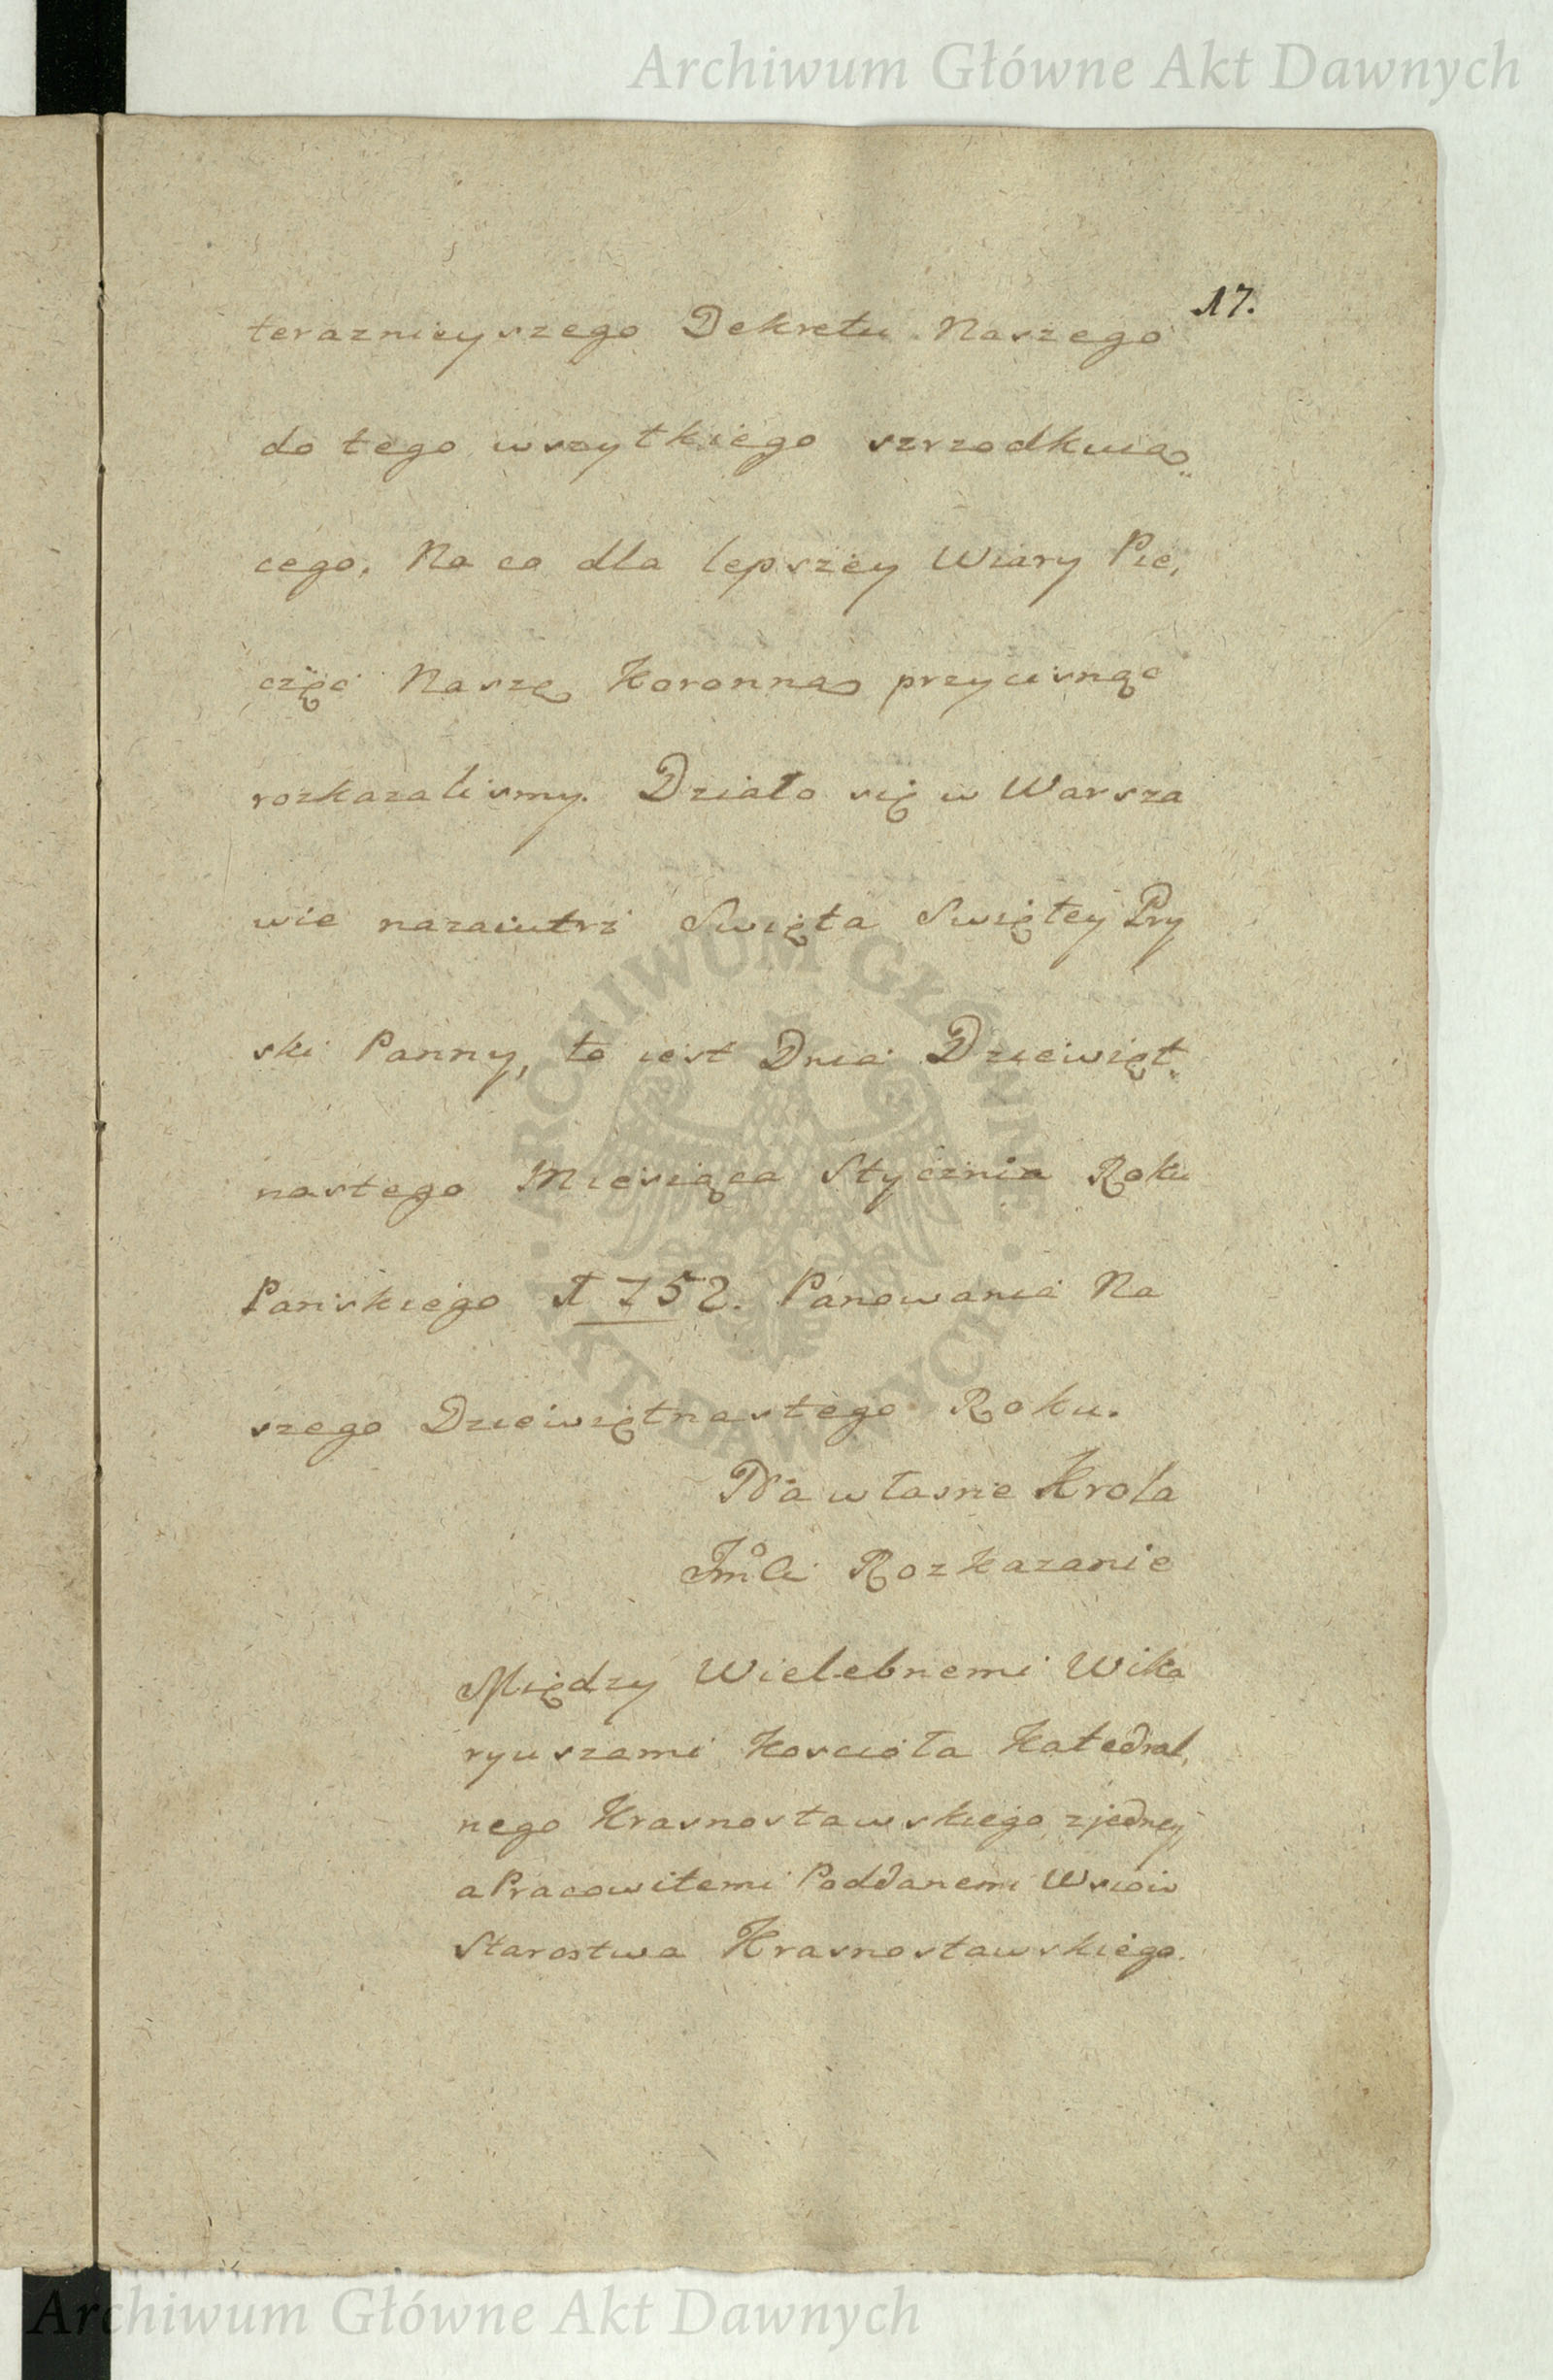 Archiwum Główne Akt Dawnych
17.
teraznieyszego Dekretu Naszego
do tego wszytkiego szrzodkuią„
cego. Na co dla lepszey Wiary Pie,
częć Naszę Koronną przycisnąć
rozkazalismy. Działo się w Warsza
wie nazaiutrz Swięta Swiętey Pry
ski Panny, to iest Dnia Dziewięt„
nastego Miesiąca Stycznia Roku
Pańskiego 1752. Panowania Na
szego Dziewiętnastego Roku.
Na własne Krola
Rozkazanie
Między Wielebnemi Wika
ryuszami Kościoła Katedral,
nego Krasnostawskiego z jedney
a Pracowitemi Poddanemi Wsiow
Starostwa Krasnostawskiego.
ARCHIWUM GŁÓWNE
AKT DAWNYCH
Archiwum Główne Akt Dawnych